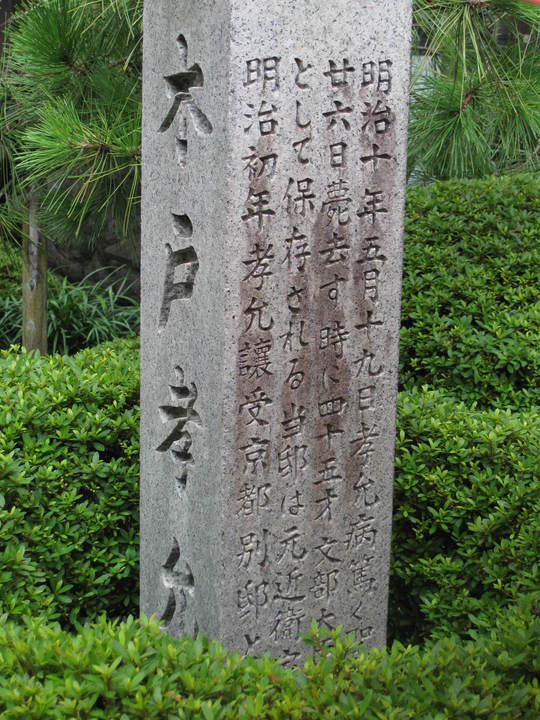 木戸孝允
明治十年五月十九日孝允病篤く
廿六日薨去す時に四十五才文部大
として保存される当邸は元近衛
明治初年孝允讓受京都別邸と